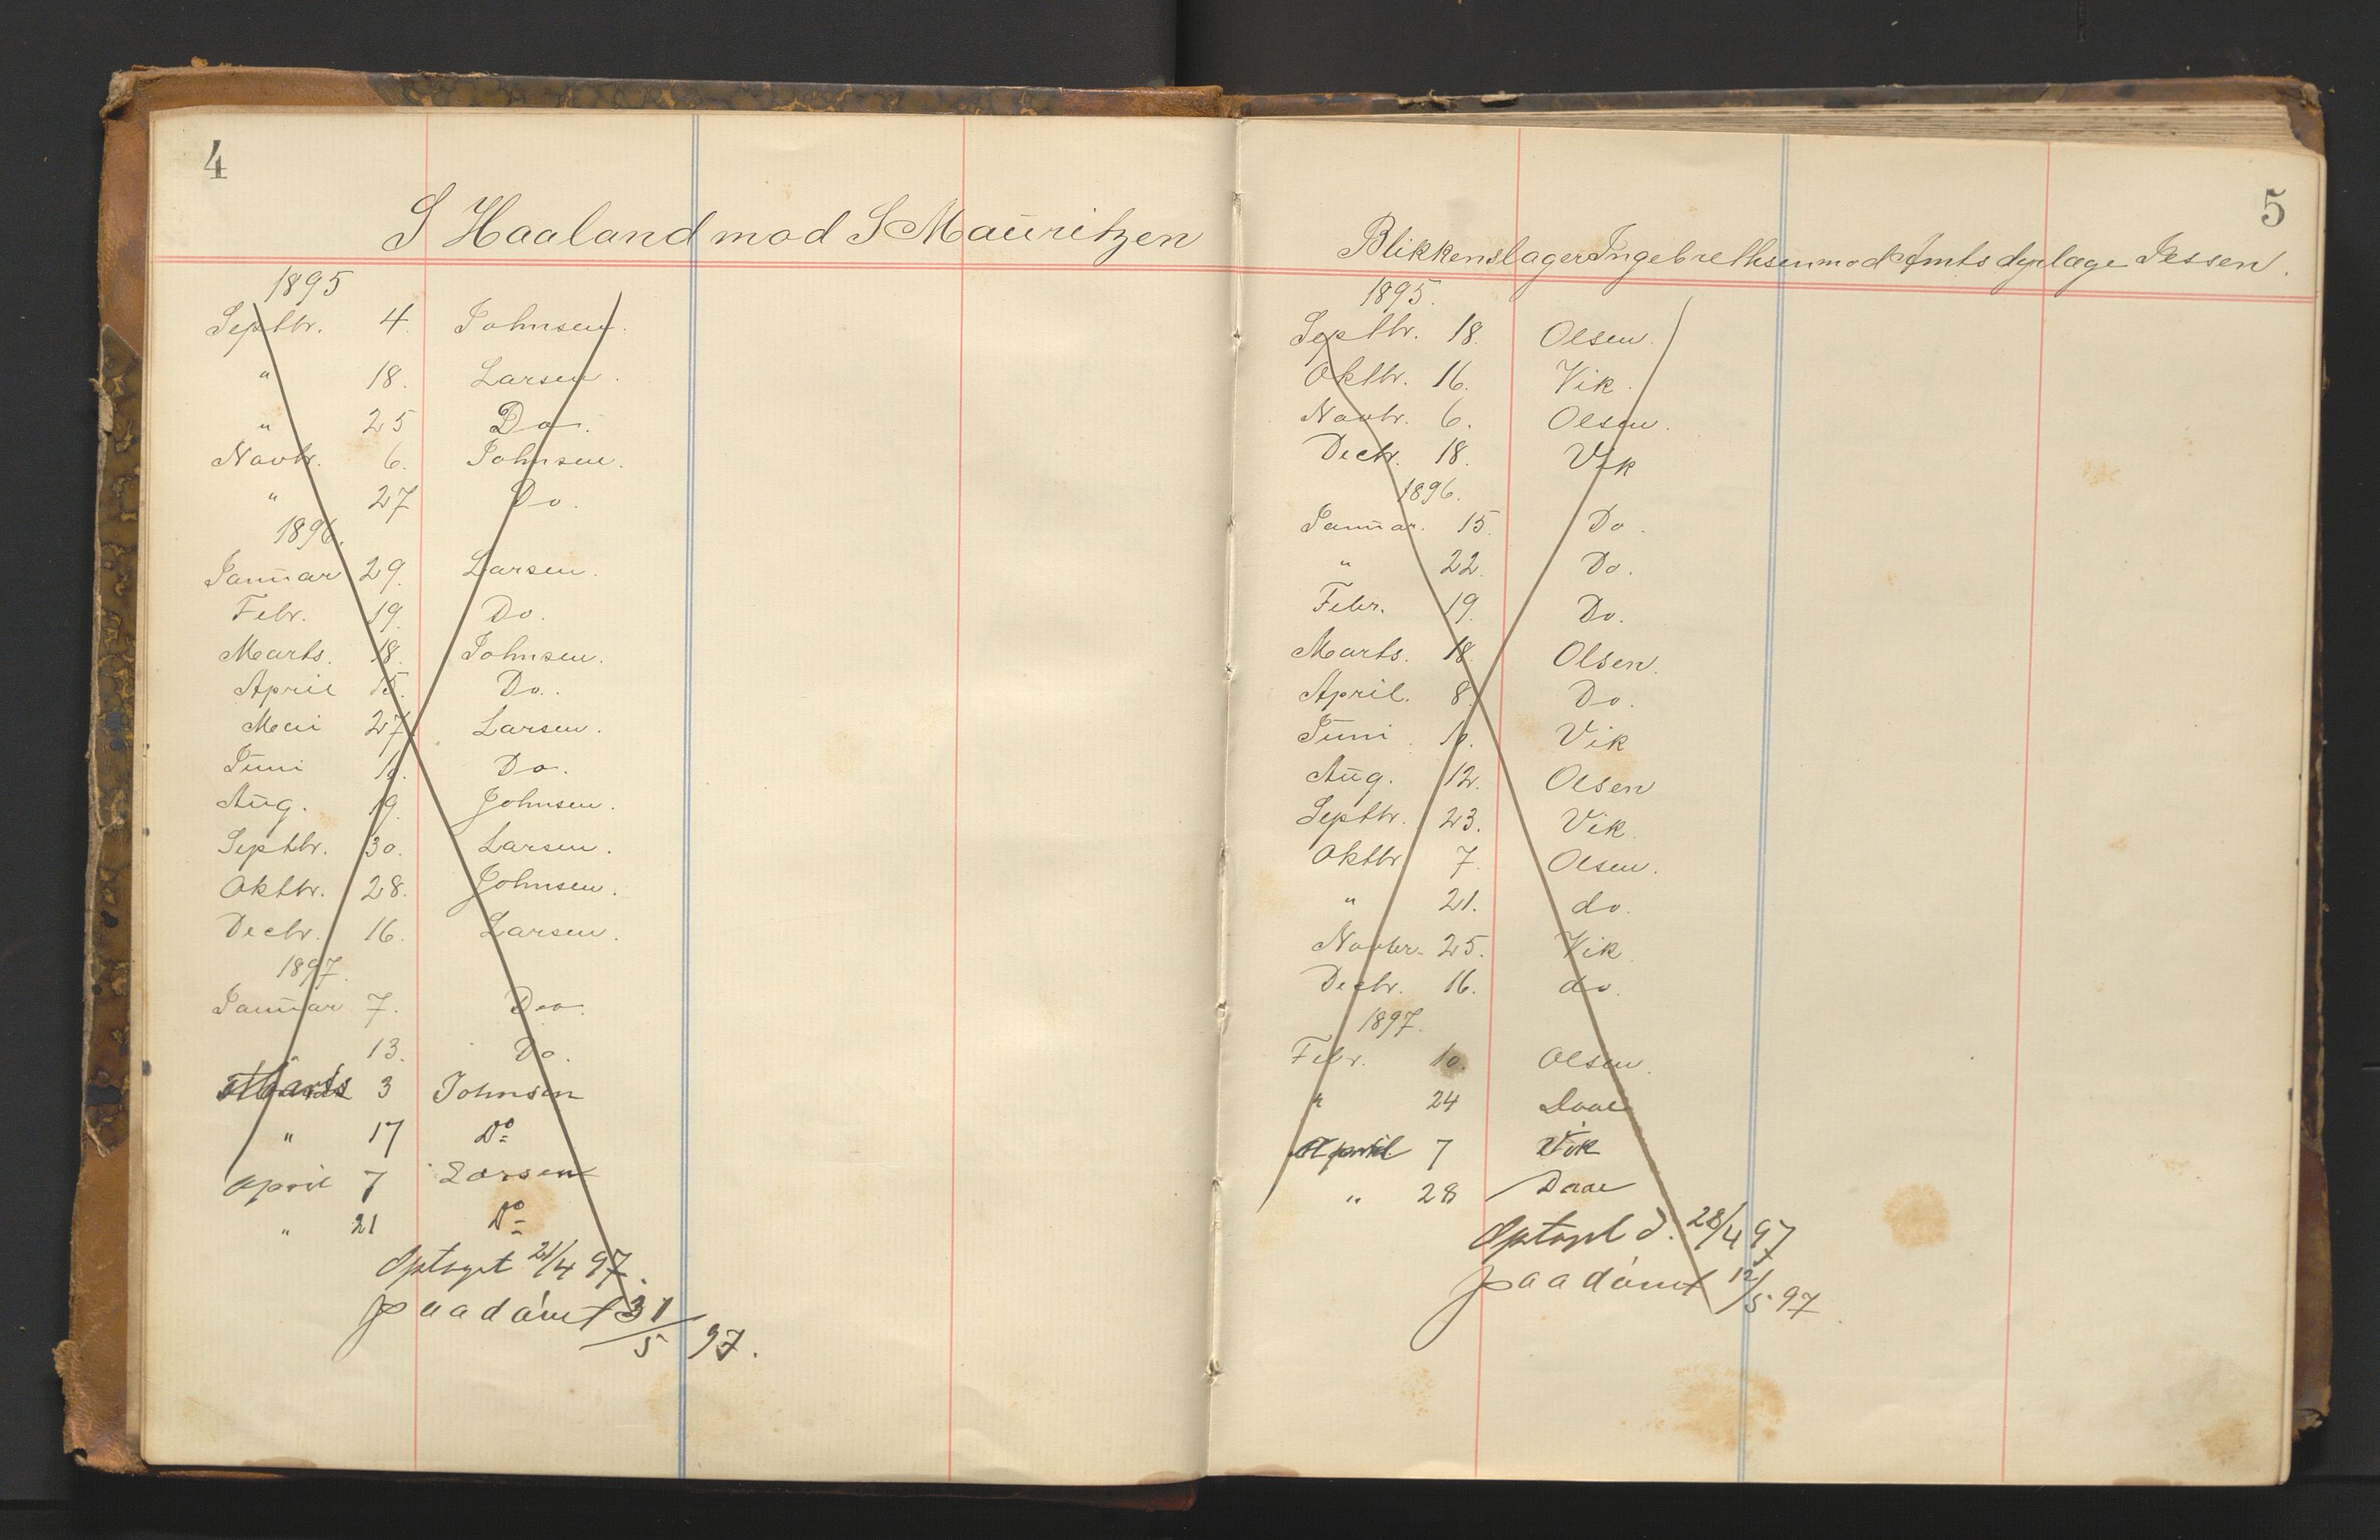 4
S Haaland mod S Mauritzen
1895
Septbr. 4. Johnsen.
" 18. Larsen.
" 25 Do.
Novbr. 6. Johnsen.
" 27 Do.
1896.
Januar 29. Larsen.
Febr. 19. Do.
Marts. 18. Johnsen.
April 15. Do.
Mai 27 Larsen.
Juni 10. Do.
Aug. 19. Johnsen.
Septbr. 30. Larsen.
Oktbr. 28. Johnsen.
Decbr. 16. Larsen.
1897.
Januar 7. Do.
" 13. Do.
Marts 3 Johnsen
" 17 Do
April 7 Larsen
" 21 Do
Optaget 21/4 97.
paadømt 31/5 97.
5
Blikkenslager Ingebrethsen mod Amtsdyrlæge Jessen.
1895.
Septbr. 18. Olsen.
Oktbr. 16. Vik.
Novbr. 6. Olsen.
Decbr. 18. Vik
1896.
Januar. 15. Do.
" 22. Do.
Febr. 19. Do.
Marts. 18. Olsen.
April. 8. Do.
Juni 10. Vik
Aug. 12. Olsen
Septbr. 23. Vik.
Oktbr. 7. Olsen.
" 21. do.
Novber. 25. Vik.
Decbr. 16. do.
1897.
Febr. 10. Olsen.
" 24 Daae
April 7 Vik
" 28 Daae
Optaget d. 28/4 97
paadømt 12/5 97